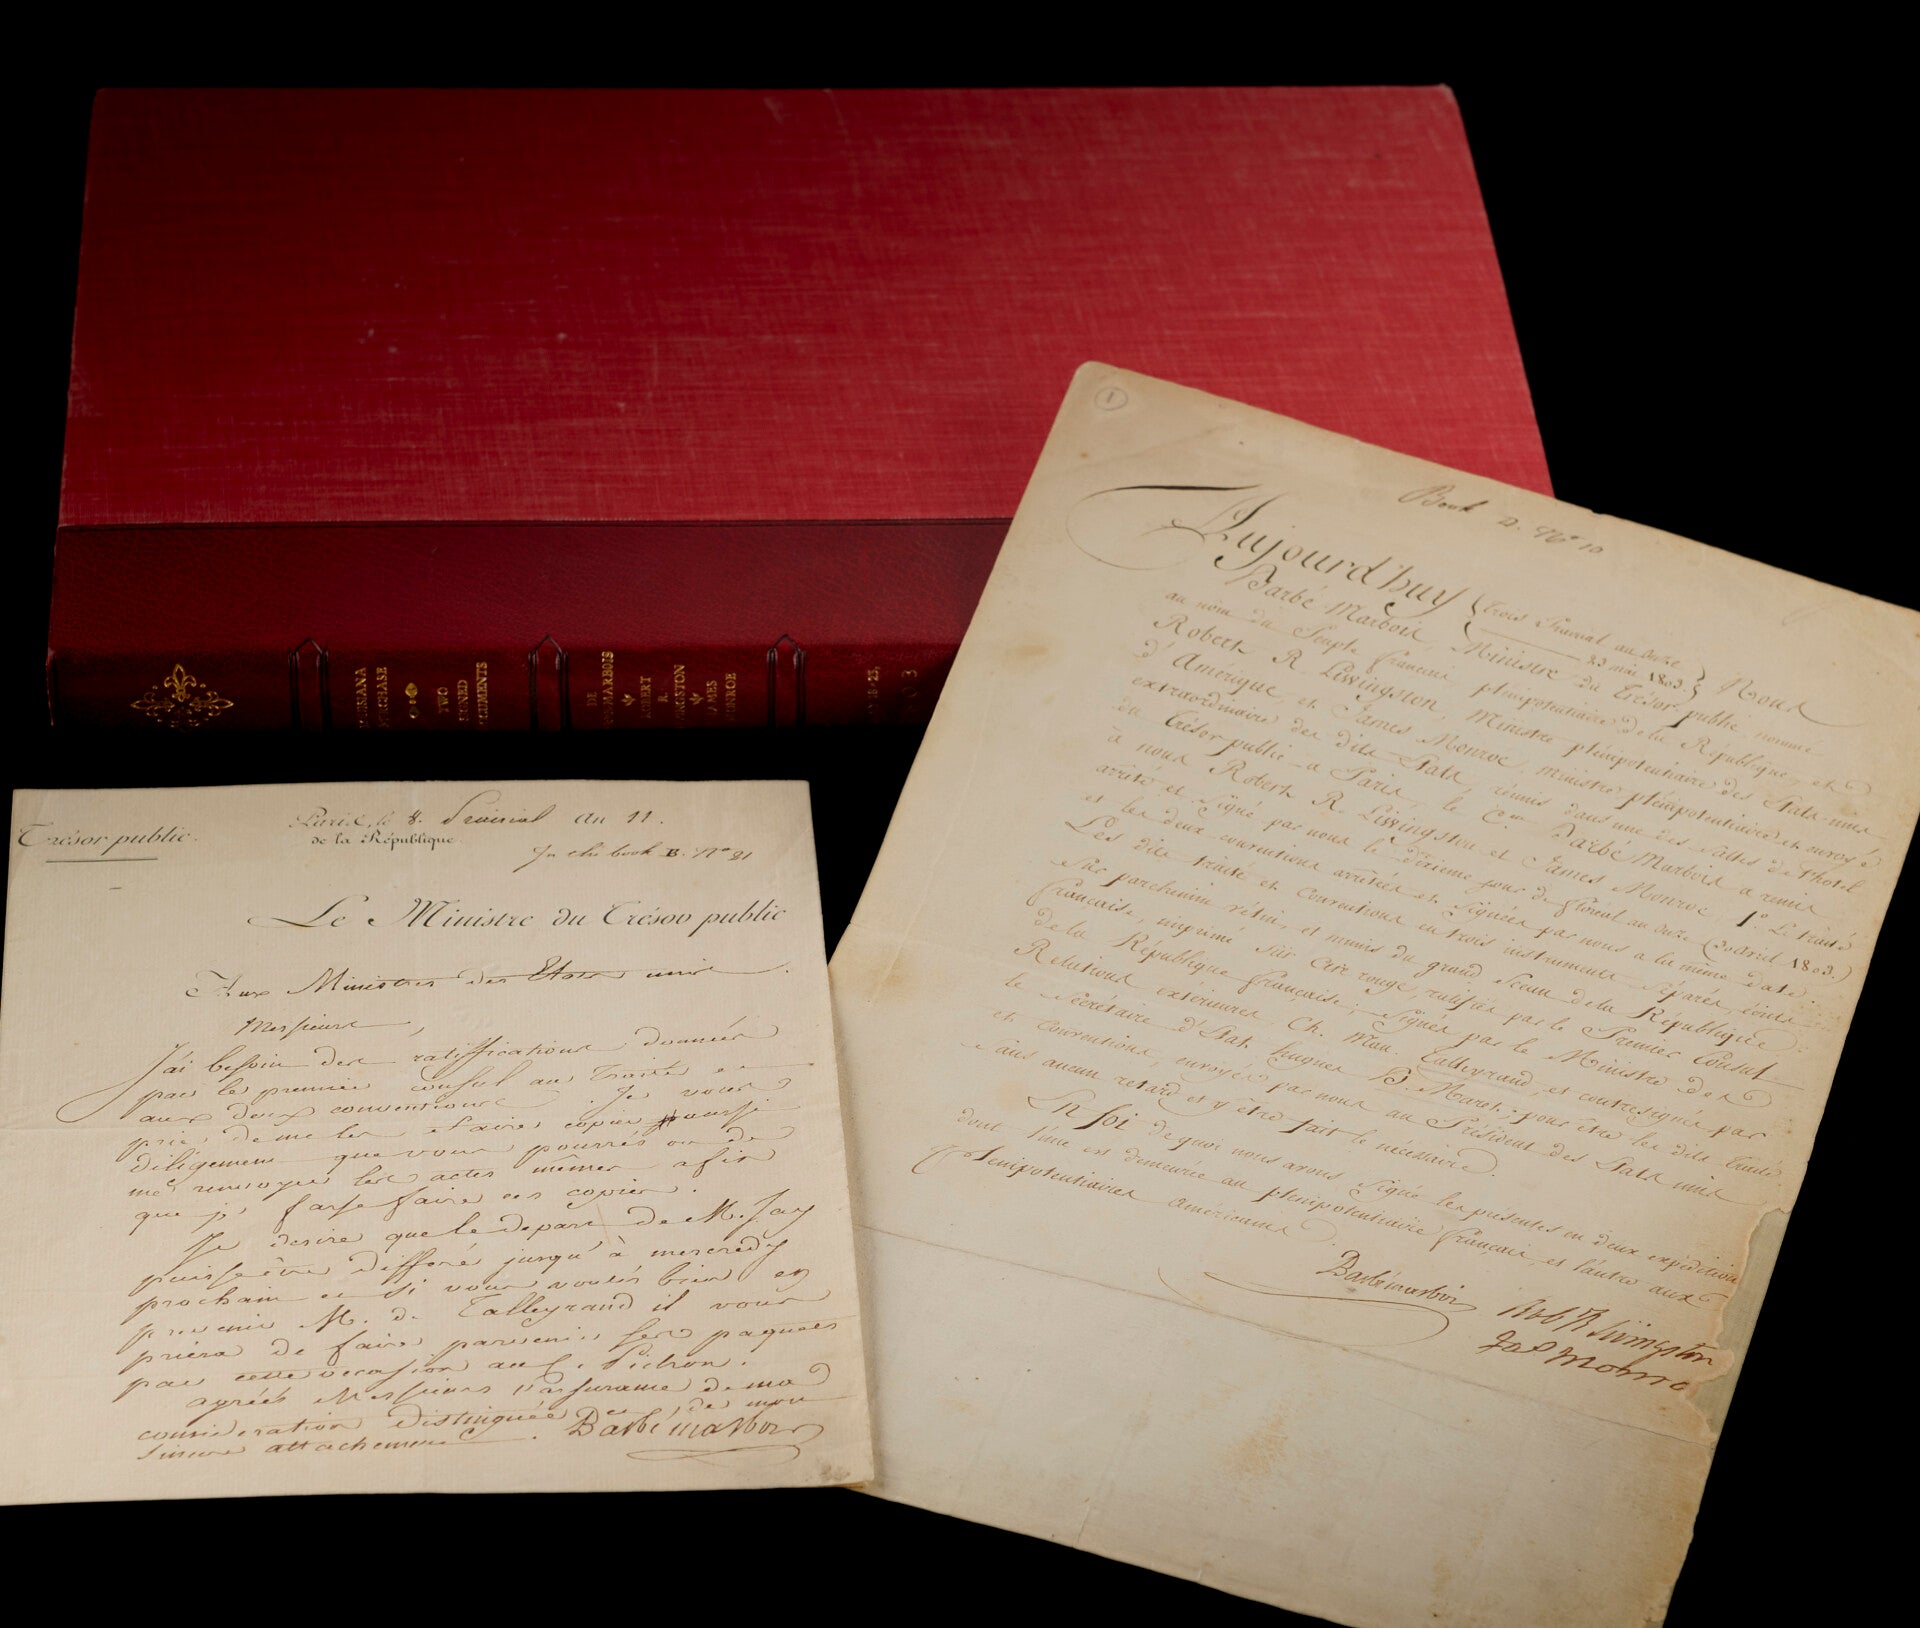 LOUISIANA
PURCHASE
TWO
SIGNED
DOCUMENTS
DE
MARBOIS
ROBERT
R.
LIVINGSTON
JAMES
MONROE
Trésor public.
Paris, le 8. Prairial an 11.
de la République.
In the book B. N° 21
Le Ministre du Trésor public
Aux Ministres des Etats unis.
Messieurs,
J'ai besoin des ratiffications données
par le premier consul au Traité et
aux deux conventions. Je vous
prie, de me les faire copier aussi
diligement que vous pourrés ou de
me renvoyer les actes mêmes afin
que j'y fasse faire ces copies.
Je desire que le depart de M. Jay
puisse être differé jusqu'à mercredy
prochain et si vous voulés bien en
prevenir M. de Talleyrand il vous
priera de faire parvenir ses paquets
par cette occasion au C. Pichon.
agréés Messieurs l'assurance de ma
consideration distinguée et de mon
sincere attachement. Barbé marbois
1
Book D. N° 10
Aujourd'huy { trois Prairial an onze
23 mai 1803. } Nous
Barbé Marbois, Ministre du Trésor public nommé
au nom du Peuple français plénipotentiaire de la République, et
Robert R Livingston, Ministre plénipotentiaire des Etats-unis
d'Amérique, et James Monroe, Ministre plénipotentiaire et envoyé
extraordinaire des dits Etats, réunis dans une des Salles de l'hotel
du Trésor public à Paris, le Cen Barbé Marbois a remis
à nous Robert R. Livingston et James Monroe, 1°. Le traité
arrêté et Signé par nous le dixieme jour de floréal an onze (30 avril 1803.)
et les deux conventions arrêtées et Signées par nous a la même date.
Les dits traité et Conventions en trois instruments Séparés, écrits
Sur parchemin vélin, et munis du grand Sceau de la République
française, imprimé sur Cire rouge, ratifiés par le Premier Consul
de la République française, Signés par le Ministre des
Relations extérieures, Ch. Mau. Talleyrand, et contresignés par
le Secrétaire d'Etat, hugues B. Maret; pour être les dits traité
et conventions, envoyés par nous au Président des Etats unis
Sans aucun retard et y être fait le nécessaire.
En foi de quoi nous avons Signé les présentes en deux expéditions
dont l'une est demeurée au plenipotentiaire français, et l'autre aux
Plenipotentiaires americains.
Barbé marbois
Robt R Livingston
Jas Monroe